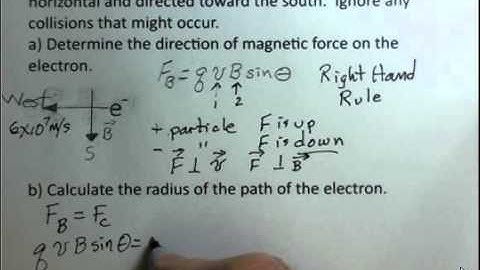 horizontal and directed toward the south. Ignore any
collisions that might occur.
a) Determine the direction of magnetic force on the
electron.
F_B = q v B sin θ Right Hand
1 2 Rule
West e⁻
6×10⁷ m/s B⃗
S
+ particle F is up
- " F is down
F⃗ ⊥ v⃗ F⃗ ⊥ B⃗
b) Calculate the radius of the path of the electron.
F_B = F_C
q v B sin θ =